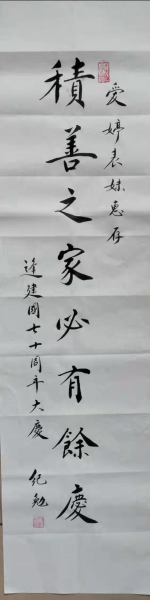 愛婷表妹惠存
積善之家必有餘慶
逢建國七十周年大慶
紀勉